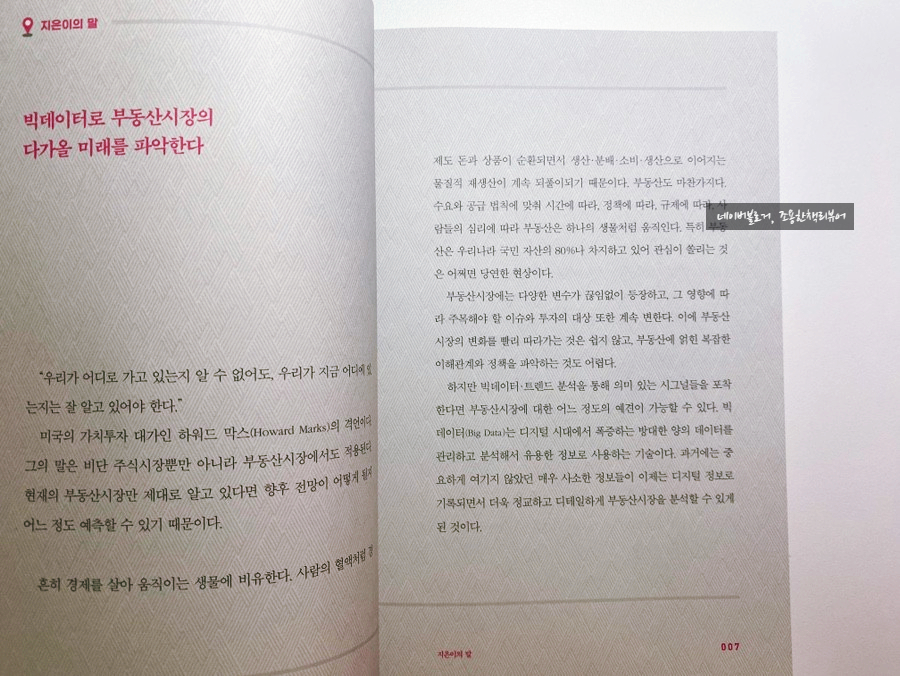 지은이의 말
빅데이터로 부동산시장의
다가올 미래를 파악한다
“우리가 어디로 가고 있는지 알 수 없어도, 우리가 지금 어디에 있
는지는 잘 알고 있어야 한다.”
미국의 가치투자 대가인 하워드 막스(Howard Marks)의 격언이다
그의 말은 비단 주식시장뿐만 아니라 부동산시장에서도 적용된다
현재의 부동산시장만 제대로 알고 있다면 향후 전망이 어떻게 될지
어느 정도 예측할 수 있기 때문이다.
흔히 경제를 살아 움직이는 생물에 비유한다. 사람의 혈액처럼 경
제도 돈과 상품이 순환되면서 생산·분배·소비·생산으로 이어지는
물질적 재생산이 계속 되풀이되기 때문이다. 부동산도 마찬가지다.
수요와 공급 법칙에 맞춰 시간에 따라, 정책에 따라, 규제에 따라, 사
람들의 심리에 따라 부동산은 하나의 생물처럼 움직인다. 특히 부동
산은 우리나라 국민 자산의 80%나 차지하고 있어 관심이 쏠리는 것
은 어쩌면 당연한 현상이다.
부동산시장에는 다양한 변수가 끊임없이 등장하고, 그 영향에 따
라 주목해야 할 이슈와 투자의 대상 또한 계속 변한다. 이에 부동산
시장의 변화를 빨리 따라가는 것은 쉽지 않고, 부동산에 얽힌 복잡한
이해관계와 정책을 파악하는 것도 어렵다.
하지만 빅데이터·트렌드 분석을 통해 의미 있는 시그널들을 포착
한다면 부동산시장에 대한 어느 정도의 예견이 가능할 수 있다. 빅
데이터(Big Data)는 디지털 시대에서 폭증하는 방대한 양의 데이터를
관리하고 분석해서 유용한 정보로 사용하는 기술이다. 과거에는 중
요하게 여기지 않았던 매우 사소한 정보들이 이제는 디지털 정보로
기록되면서 더욱 정교하고 디테일하게 부동산시장을 분석할 수 있게
된 것이다.
지은이의 말
007
네이버블로거, 조용한책리뷰어